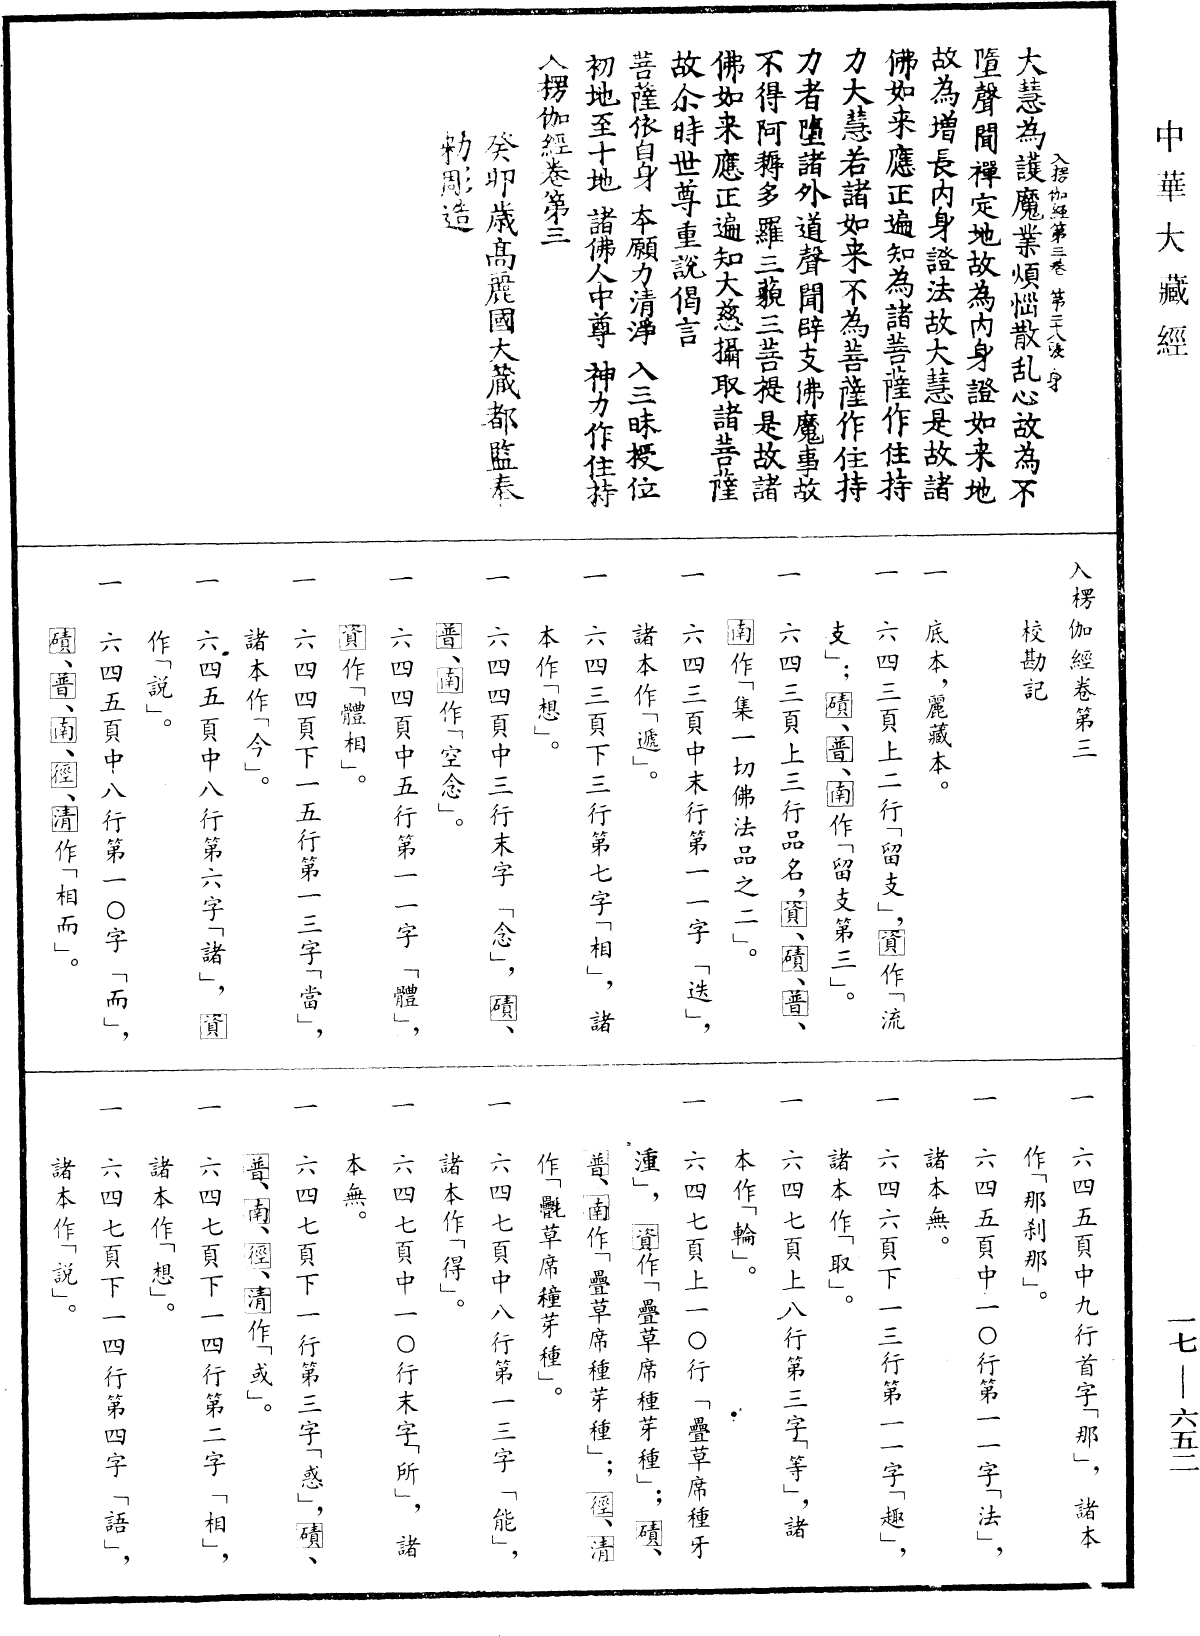 中華大藏經
入楞伽經第三卷　第二十八張　身
大慧為護魔業煩惱散乱心故為不
墮聲聞禪定地故為内身證如来地
故為增長内身證法故大慧是故諸
佛如来應正遍知為諸菩薩作住持
力大慧若諸如来不為菩薩作住持
力者墮諸外道聲聞辟支佛魔事故
不得阿耨多羅三藐三菩提是故諸
佛如来應正遍知大慈攝取諸菩薩
故尒時世尊重說偈言
菩薩依自身　本願力清淨　入三昧授位
初地至十地　諸佛人中尊　神力作住持
入楞伽經卷第三
癸卯歳高麗國大藏都監奉
勅彫造
入楞伽經卷第三
校勘記
一　底本，麗藏本。
一　六四三頁上二行「留支」，資作「流
支」；磧、普、南作「留支第三」。
一　六四三頁上三行品名，資、磧、普、
南作「集一切佛法品之二」。
一　六四三頁中末行第一一字「迭」，
諸本作「遞」。
一　六四三頁下三行第七字「相」，諸
本作「想」。
一　六四四頁中三行末字「念」，磧、
普、南作「空念」。
一　六四四頁中五行第一一字「體」，
資作「體相」。
一　六四四頁下一五行第一三字「當」，
諸本作「今」。
一　六四五頁中八行第六字「諸」，資
作「說」。
一　六四五頁中八行第一〇字「而」，
磧、普、南、徑、清作「相而」。
一　六四五頁中九行首字「那」，諸本
作「那刹那」。
一　六四五頁中一〇行第一一字「法」，
諸本無。
一　六四六頁下一三行第一一字「趣」，
諸本作「取」。
一　六四七頁上八行第三字「等」，諸
本作「輪」。
一　六四七頁上一〇行「疊草席種牙
湩」，資作「疊草席種芽種」；磧、
普、南作「疊草席種芽種」；徑、清
作「氎草席穜芽種」。
一　六四七頁中八行第一三字「能」，
諸本作「得」。
一　六四七頁中一〇行末字「所」，諸
本無。
一　六四七頁下一行第三字「惑」，磧、
普、南、徑、清作「或」。
一　六四七頁下一四行第二字「相」，
諸本作「想」。
一　六四七頁下一四行第四字「語」，
諸本作「説」。
一七—六五二